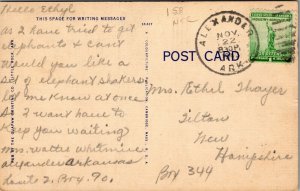 Hello Ethyl
THIS SPACE FOR WRITING MESSAGES
as I have tried to get
elephants & can't
would you like a
set of elephant shakers
let me know at once
I want have to
keep you waiting
Mrs. Walter Whitmire
alexander arkansas
Route 2. Box. 70.
158
NXC
POST CARD
ALEXANDER
NOV
22
ARK.
Mrs. Ethel Thayer
Tilton
New
Hampshire
Box 344